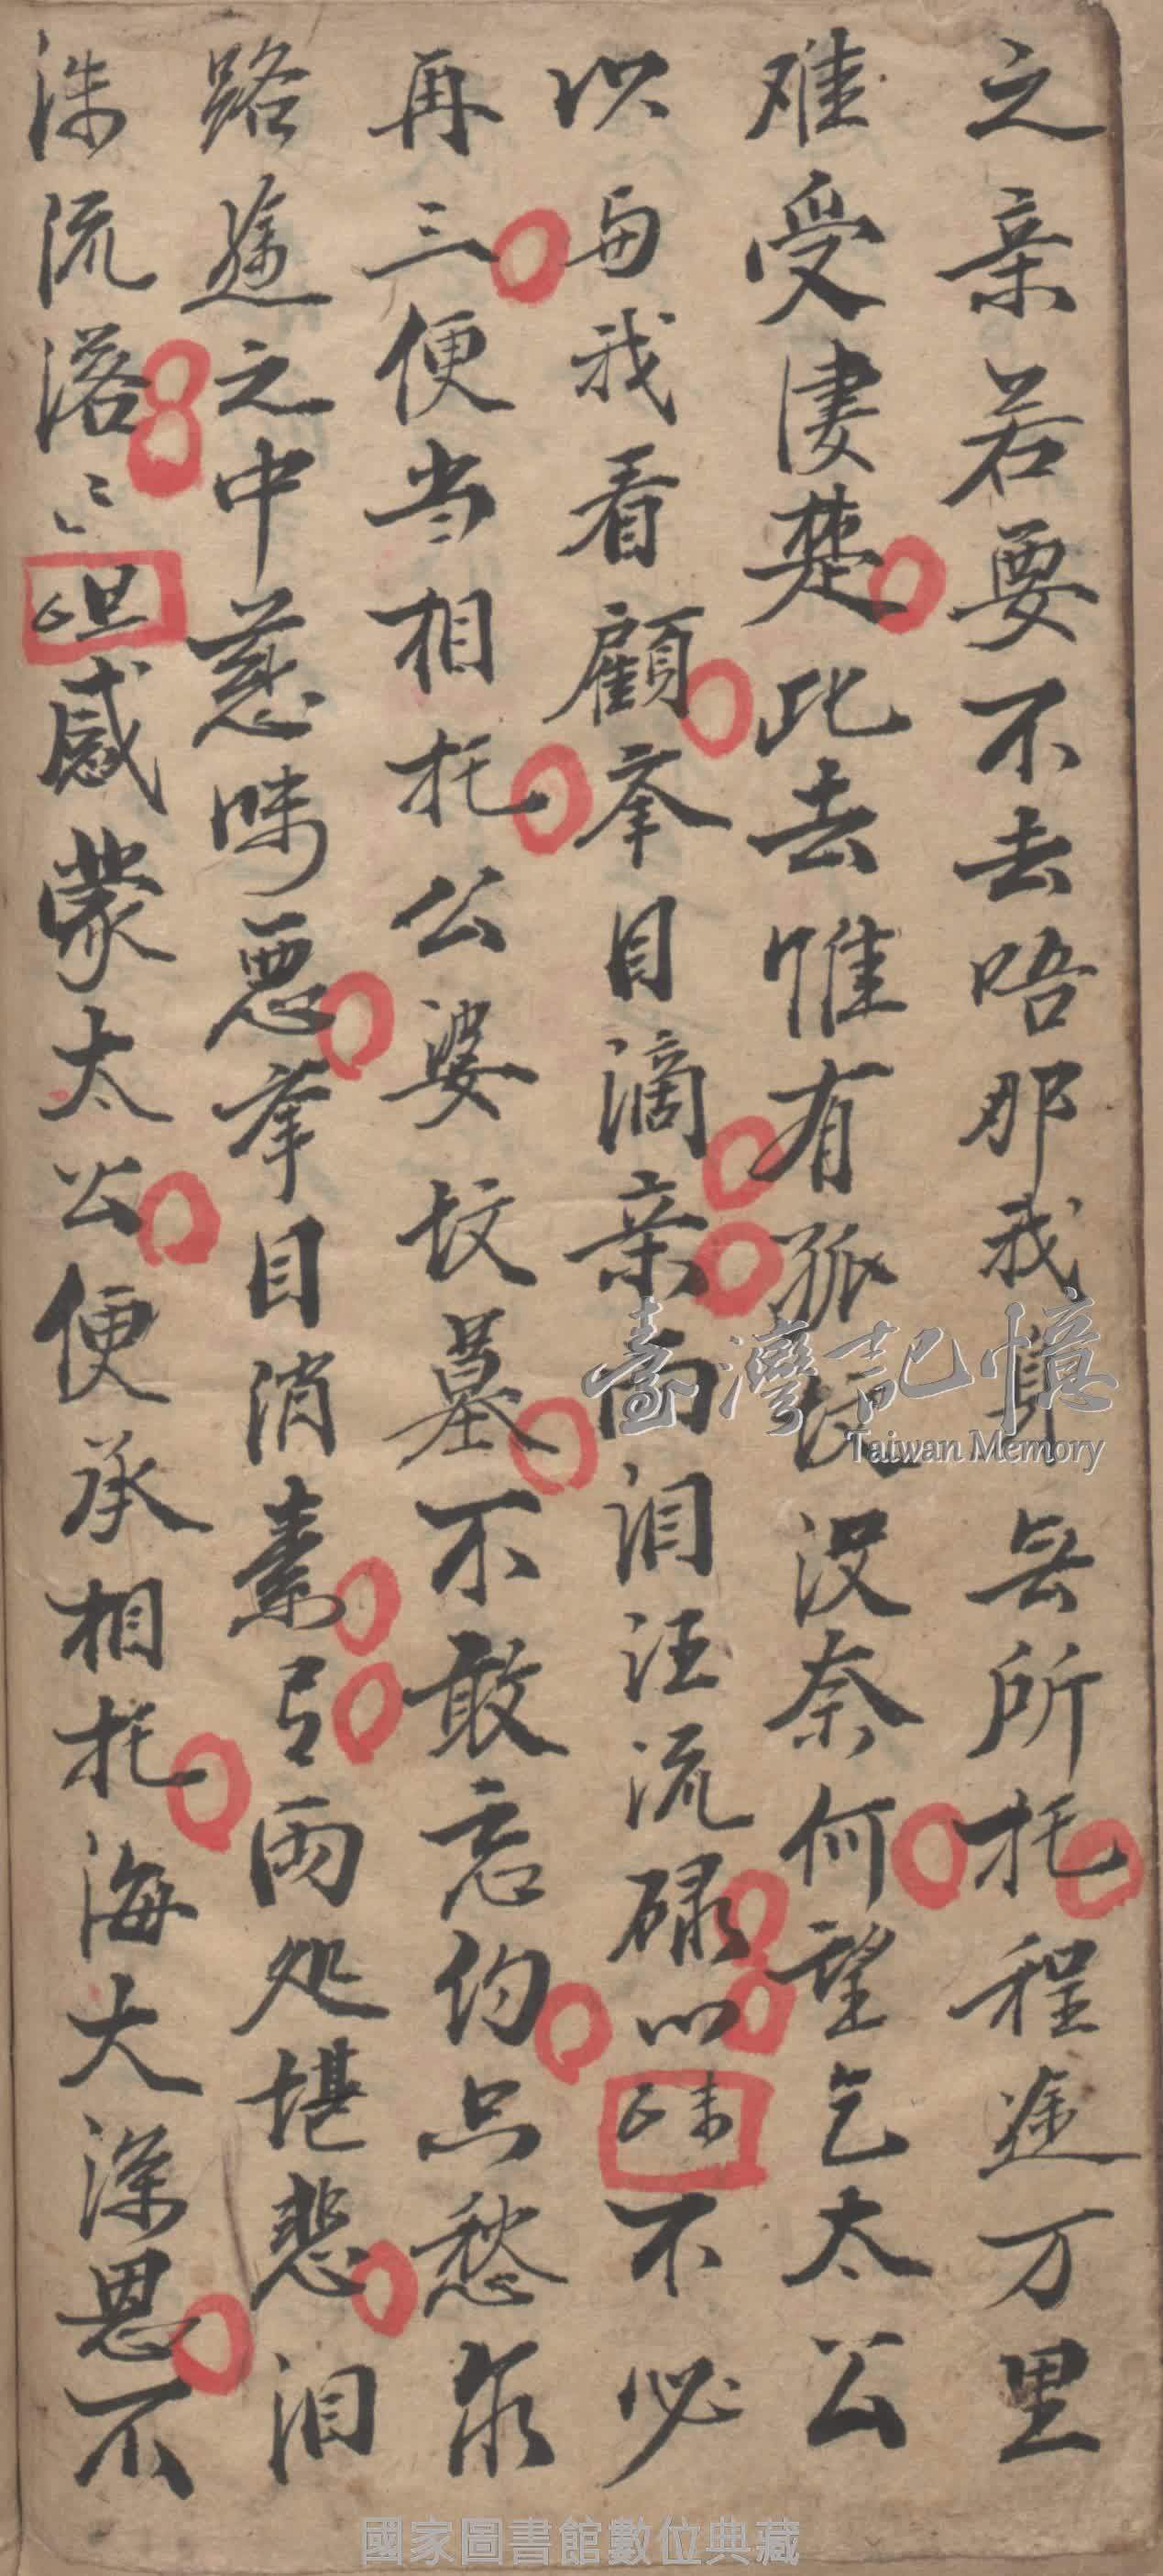 之亲若要不去唔那我身無所托程途万里
难受凄楚此去惟有孤坟没奈何望乞太公
以与我看顧举目滴亲向泪汪流碌〻正末不必
再三便当相托公婆坟墓不敢忘約只愁你
路途之中慈味悪举目消素弓两処堪悲泪
洙流落〻正旦感蒙太公便承相托海大深恩不
臺灣記憶
Taiwan Memory
國家圖書館數位典藏